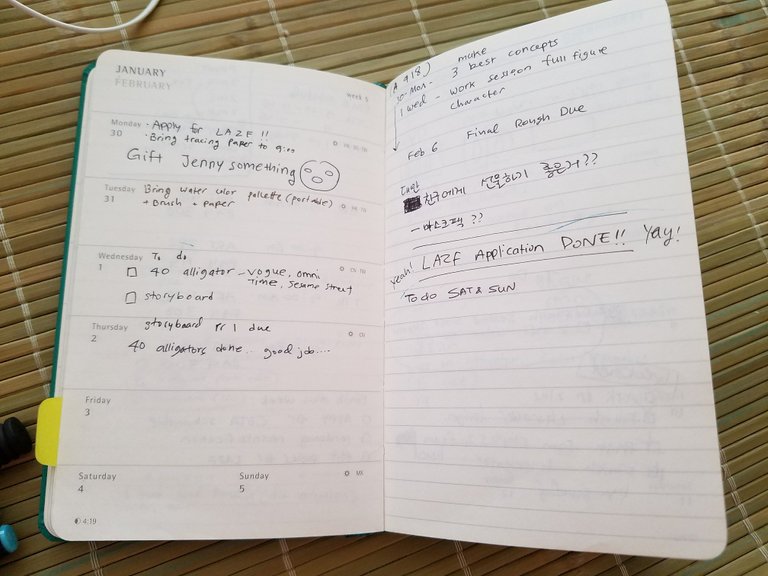 JANUARY
FEBRUARY
week 5
Monday
30
· Apply for LAZF !!
· Bring tracing paper to
Gift Jenny something
Tuesday
31
Bring water color pallette (portable)
+ brush + paper
Wednesday
1
To do
40 alligator - vogue, omni
Time, Sesame Street
storyboard
Thursday
2
storyboard due
CN
40 alligators done.. good job....
Friday
3
Saturday
4
Sunday
5
MX
4:19
make
30-Mon- 3 best concepts
1 wed - work session full figure
character
Feb 6 Final Rough Due
대만
친구에게 선물하기 좋은거??
- 마스크팩 ??
Yeah! LAZF Application DONE!! Yay!
To do SAT & SUN